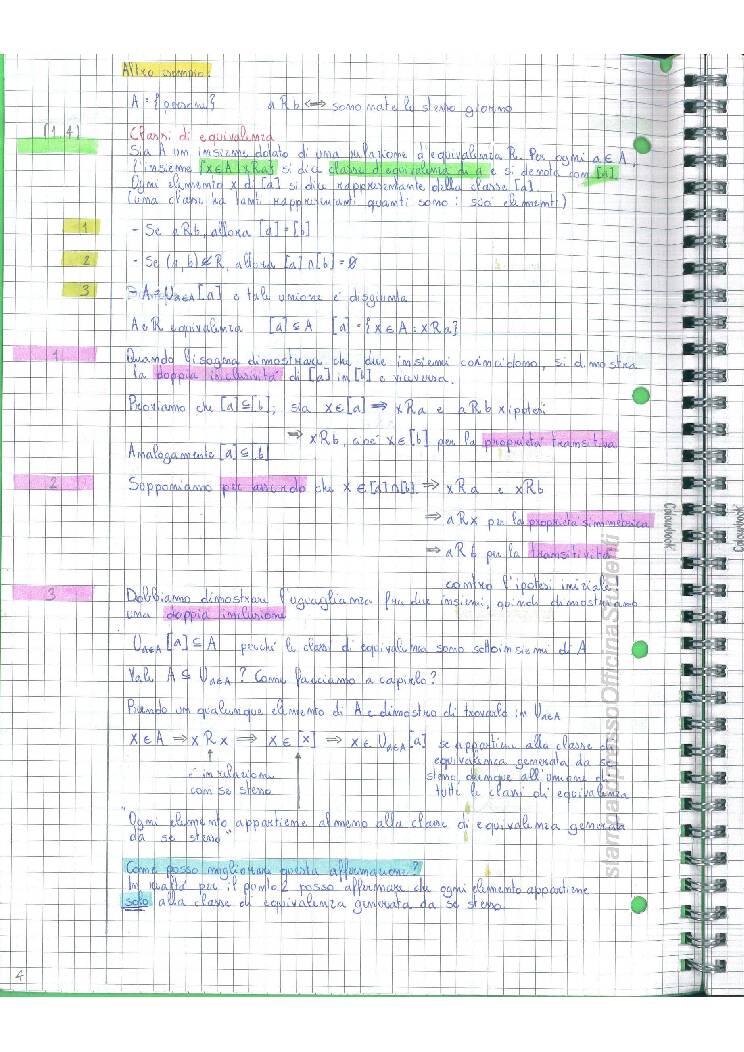 Altro esempio:
A = {persone} aRb ⟺ sono nate lo stesso giorno
[1.4] Classi di equivalenza
Sia A un insieme dotato di una relazione d'equivalenza R. Per ogni a∈A,
l'insieme {x∈A | xRa} si dice classe d'equivalenza di a e si denota con [a].
Ogni elemento x di [a] si dice rappresentante della classe [a].
(una classe ha tanti rappresentanti quanti sono i suoi elementi)
1 - Se aRb, allora [a]=[b]
2 - Se (a,b)∉R, allora [a]∩[b]=∅
3 - A=∪a∈A[a] e tale unione è disgiunta
A∈R equivalenza [a]⊆A [a]={x∈A : xRa}
1 Quando bisogna dimostrare che due insiemi coincidono, si dimostra
la doppia inclusività di [a] in [b] e viceversa.
Proviamo che [a]⊆[b]; sia x∈[a] ⟹ xRa e aRb x ipotesi
⟹ xRb, cioè x∈[b] per la proprietà transitiva
Analogamente [a]⊆[b]
2 Supponiamo per assurdo che x∈[a]∩[b]. ⟹ xRa e xRb
⟹ aRx per la proprietà simmetrica
⟹ aRb per la transitività
contro l'ipotesi iniziale!
3 Dobbiamo dimostrare l'uguaglianza fra due insiemi, quindi dimostriamo
una doppia inclusione
∪a∈A[a]⊆A perché le classi di equivalenza sono sottoinsiemi di A
Vale A⊆∪a∈A? Come facciamo a capirlo?
Prendo un qualunque elemento di A e dimostro di trovarlo in ∪a∈A
x∈A ⟹ xRx ⟹ x∈[x] ⟹ x∈∪a∈A[a] se appartiene alla classe di
equivalenza generata da se
stesso, dunque all'unione di
tutte le classi di equivalenza
è in relazione
con se stesso
"Ogni elemento appartiene almeno alla classe di equivalenza generata
da se stesso"
Come posso migliorare questa affermazione?
In realtà per il punto 2 posso affermare che ogni elemento appartiene
solo alla classe di equivalenza generata da se stesso
4
Colourbook
Colourbook
stampatopressoOfficinaStudenti